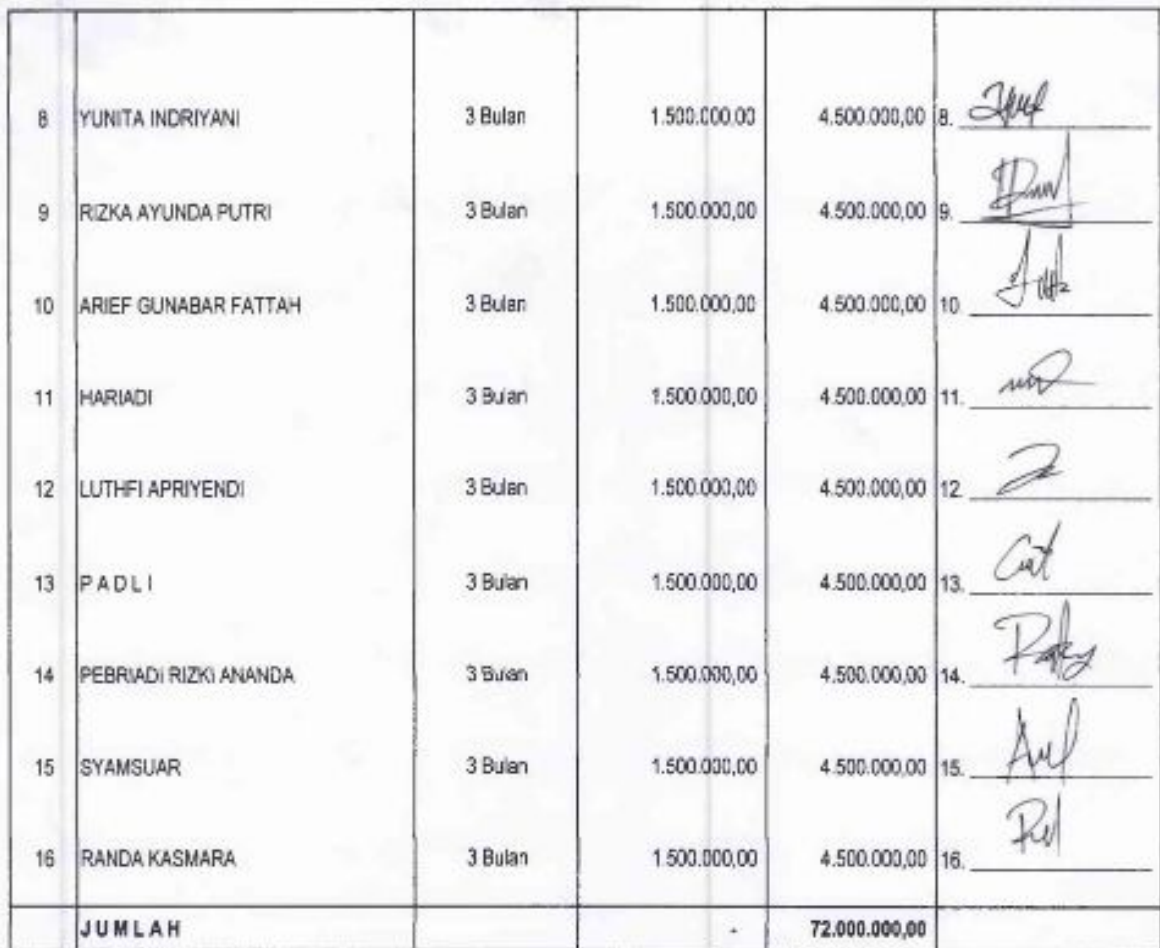 8 YUNITA INDRIYANI 3 Bulan 1.500.000,00 4.500.000,00 8.
9 RIZKA AYUNDA PUTRI 3 Bulan 1.500.000,00 4.500.000,00 9.
10 ARIEF GUNABAR FATTAH 3 Bulan 1.500.000,00 4.500.000,00 10.
11 HARIADI 3 Bulan 1.500.000,00 4.500.000,00 11.
12 LUTHFI APRIYENDI 3 Bulan 1.500.000,00 4.500.000,00 12.
13 P A D L I 3 Bulan 1.500.000,00 4.500.000,00 13.
14 PEBRIADI RIZKI ANANDA 3 Bulan 1.500.000,00 4.500.000,00 14.
15 SYAMSUAR 3 Bulan 1.500.000,00 4.500.000,00 15.
16 RANDA KASMARA 3 Bulan 1.500.000,00 4.500.000,00 16.
J U M L A H - 72.000.000,00